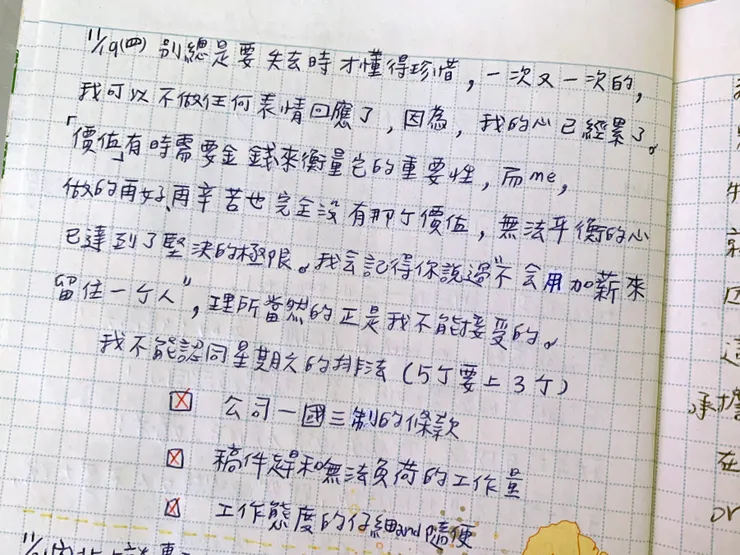 11/19(四) 別總是要失去時才懂得珍惜，一次又一次的，
我可以不做任何表情回應了，因為，我的心已經累了。
「價值」有時需要金錢來衡量它的重要性，而me，
做的再好、再辛苦也完全沒有那个價值，無法平衡的心
已達到了堅決的極限。我会記得你說過"不会用加薪來
留住一个人"，理所當然的正是我不能接受的。
我不能認同星期六的排法（5个要上3个）
公司一國三制的條款
稿件趕和無法負荷的工作量
工作態度的仔細and隨便
承擔
在
or